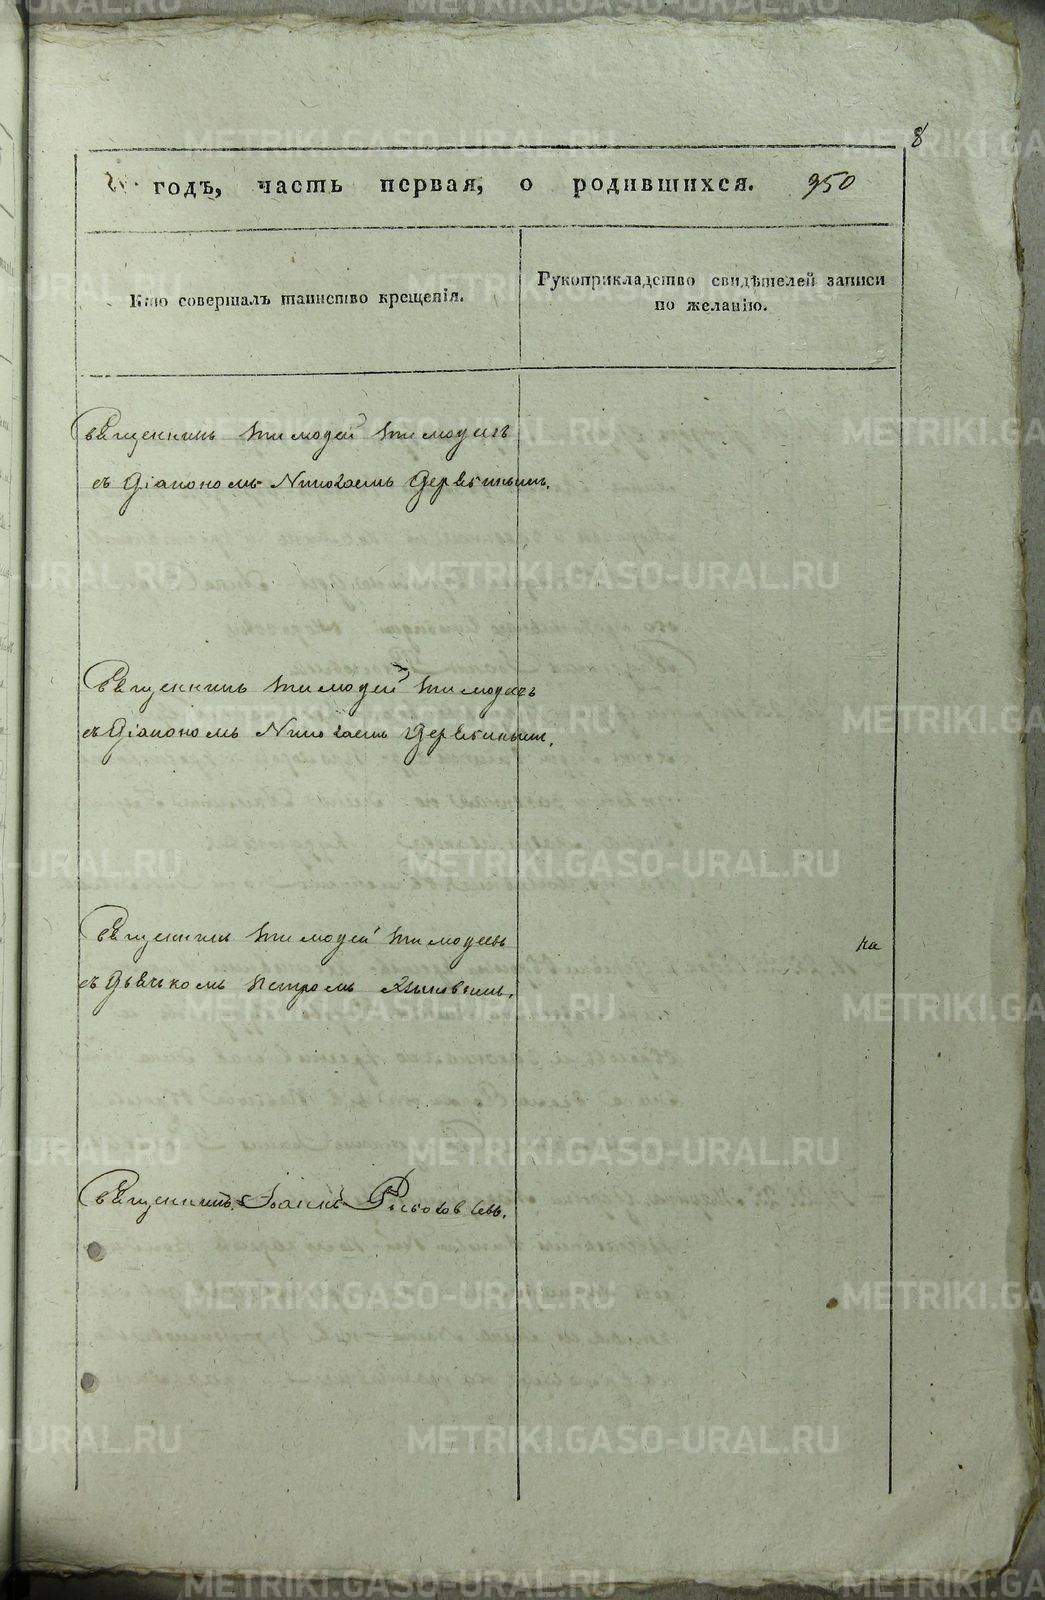 8
годъ, часть первая, о родившихся. 950
Кто совершалъ таинство крещенія.
Рукоприкладство свидѣтелей записи
по желанію.
Священникъ Тимофей Тимофеевъ
съ Діакономъ Николаемъ
Священникъ Тимофей Тимофеевъ
съ Діакономъ Николаемъ
Священникъ Тимофей Тимофеевъ
съ Дьячкомъ Петромъ
на
Священникъ Іоаннъ
METRIKI.GASO-URAL.RU